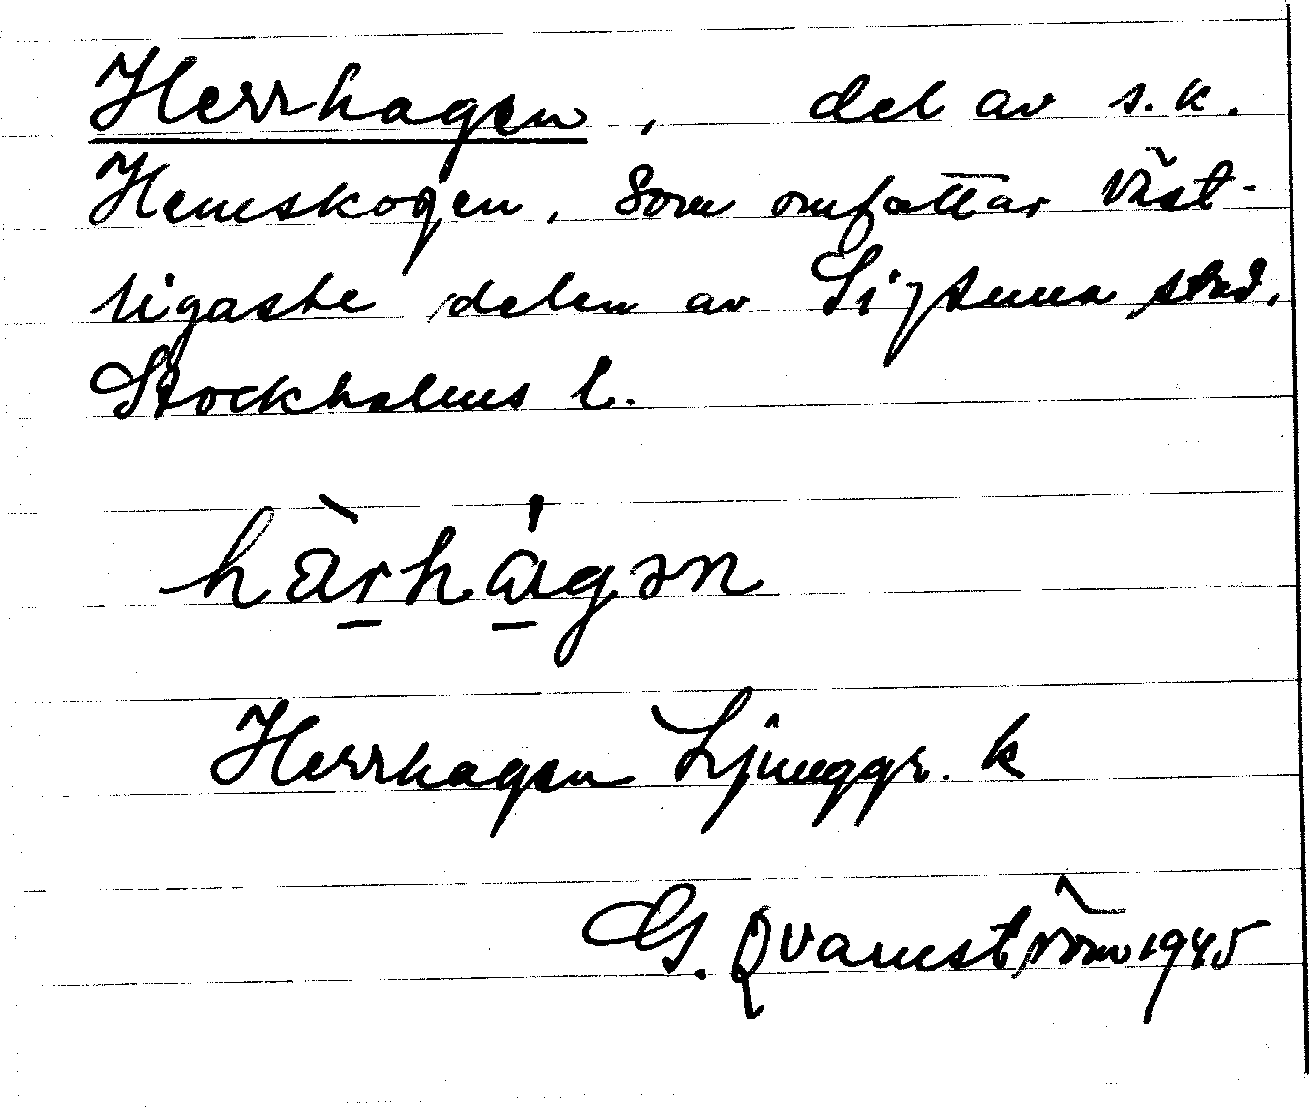 Herrhagen, del av s.k.
Hemskogen, som omfattar väst-
ligaste delen av Sigtuna stad.
Stockholms l.
hàrhágən
Herrhagen Ljunggr. k
G. Qvarnström 1945